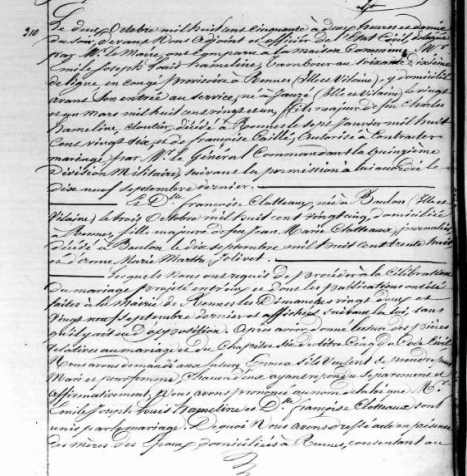 210
Le deux Octobre mil huit cent cinquante à deux heures et demie
du soir, devant Nous Adjoint et Officier de l'Etat Civil, délégué
par Mr le Maire, ont comparu à la maison Commune, Mr
Emile Joseph Louis Hameline, tambour au soixante
de ligne en congé provisoire à Rennes (Ille et Vilaine) y domicilié
avant son entrée au service, né à Janzé (Ille et Vilaine) le vingt
et un Mars mil huit cent vingt et un, fils majeur de feu Charles
Hameline, cloutier, décédé à Rennes le sept Janvier mil huit
cent vingt six, et de françoise Caillé; autorisé à contracter
mariage, par Mr le Général Commandant la quinzième
Division Militaire, suivant la permission à lui accordée le
dix neuf septembre dernier.
Et Dlle françoise Clotteaux, née à Baulon (Ille et
Vilaine) le trois Octobre mil huit cent vingt cinq, domiciliée
à Rennes, fille majeure de feu Jean Marie Clotteaux, journalier,
décédé à Baulon le dix septembre mil huit cent trente huit
et d'Anne Marie Marthe Jolivet.
Lesquels nous ont requis de procéder à la célébration
du mariage projeté entr'eux et dont les publications ont été
faites à la Mairie de Rennes les Dimanches vingt deux et
vingt neuf septembre dernier et affichées suivant la loi, sans
qu'il y ait eu d'opposition. Après avoir donné lecture des pièces
relatives au mariage et du Chapitre six du titre Cinq du Code Civil
Nous avons demandé aux futurs Epoux s'ils veulent se prendre pour
Mari et pour femme, chacun d'eux ayant répondu séparément et
affirmativement, Nous avons prononcé au nom de la loi que Mr
Emile Joseph Louis Hameline et Dlle françoise Clotteaux sont
unis par le mariage. De quoi Nous avons dressé acte en présence
des mères des Epoux domiciliées à Rennes, consentant au